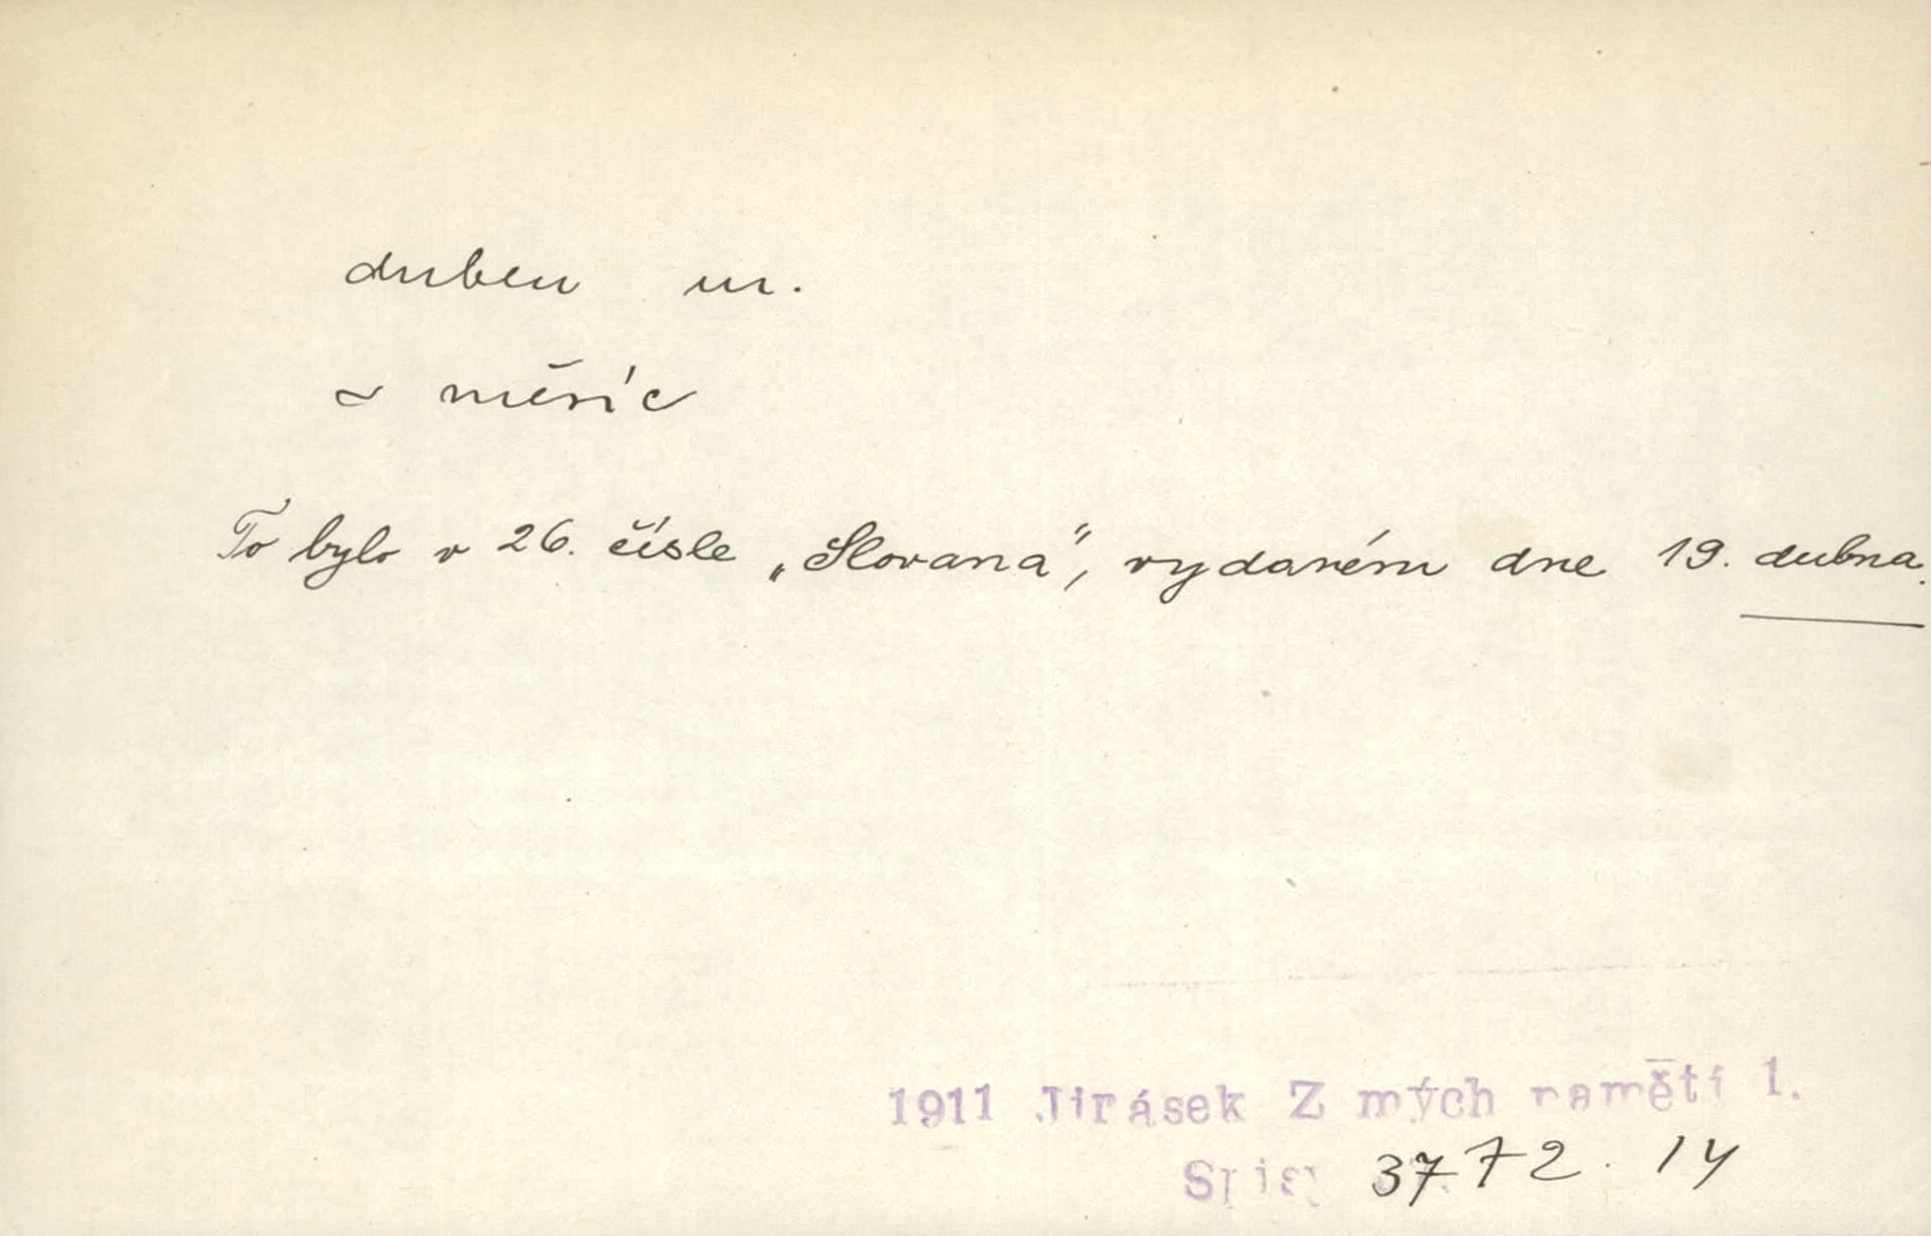 duben m.
~ měsíc
To bylo v 26. čísle „Slovana“, vydaném dne 19. dubna.
1911 Jirásek Z mých pamětí 1.
Spisy 372. 14